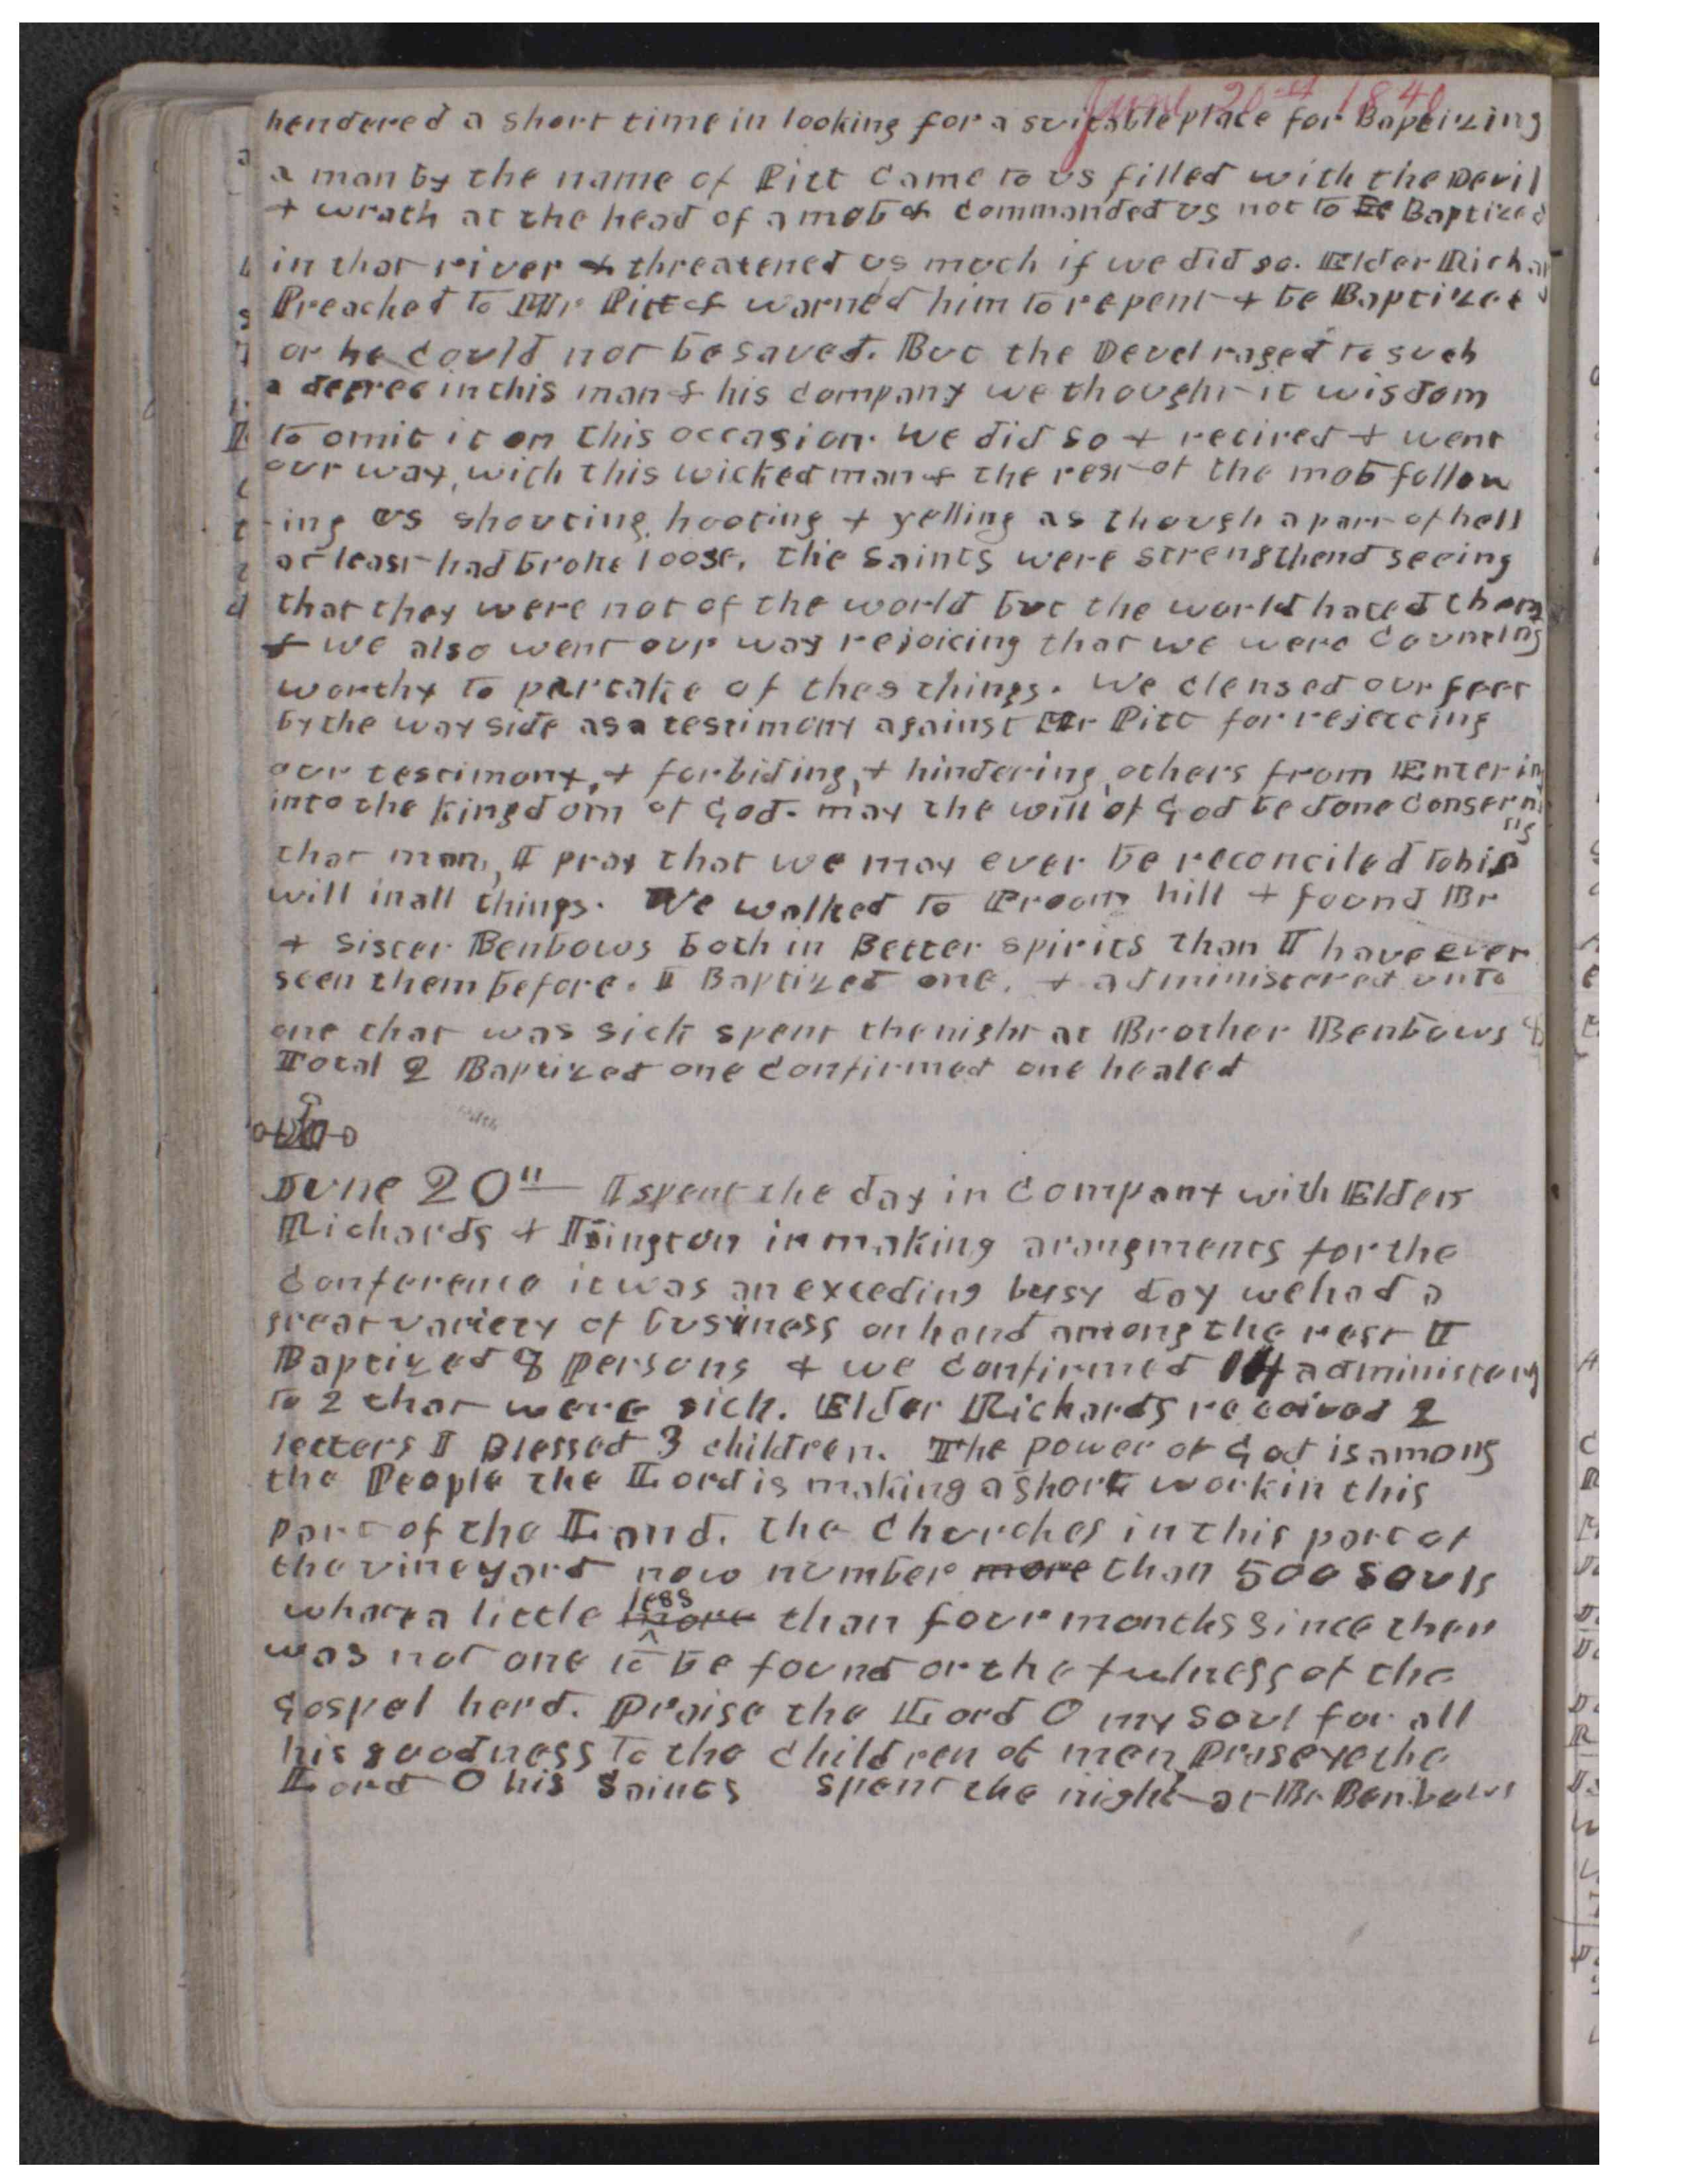 June 20th 1840
hendered a short time in looking for a suitable place for Baptizing
a man by the name of Pitt came to us filled with the Devil
& wrath at the head of a mob & commanded us not to be Baptized
in that river & threatened us much if we did so. Elder Richar
Preached to Mr Pitt & warned him to repent & be Baptized
or he could not be saved. But the Devel raged to such
a degree in this man & his company we thought it wisdom
to omit it on this occasion. We did so & retired & went
our way, with this wicked man & the rest of the mob follow
-ing us shouting, hooting & yelling as though a part of hell
at least had broke loose. the Saints were strengthend seeing
that they were not of the world but the world hated them
& we also went our way rejoicing that we were counting
worthy to partake of thes things. We clensed our feet
by the way side as a testimony against Mr Pitt for rejecting
our testimony, & forbiding, & hindering others from Entering
into the kingdom of God. may the will of God be done conserning
that man, I pray that we may ever be reconciled to his
will in all things. We walked to Froom hill & found Br
& Sister Benbows both in Better spirits than I have ever
seen them before. I Baptized one. & administered unto
one that was sick spent the night at Brother Benbows 8
Total 2 Baptized one confirmed one healed
June 20" I spent the day in company with Elders
Richards & Kington in making arangments for the
conference it was an exceding busy day we had a
great variety of business on hand among the rest I
Baptized 8 persons & we confirmed 14 administerg
to 2 that were sick. Elder Richards received 2
letters I Blessed 3 children. The power of God is among
the People the Lord is making a short work in this
part of the Land. the Churches in this part of
the vineyard now number more than 500 souls
whare a little less more than four months since ther
was not one to be found or the fulness of the
gospel herd. Praise the Lord O my soul for all
his goodness to the children of men, prase ye the
Lord O his Saints spent the night at Br Benbows